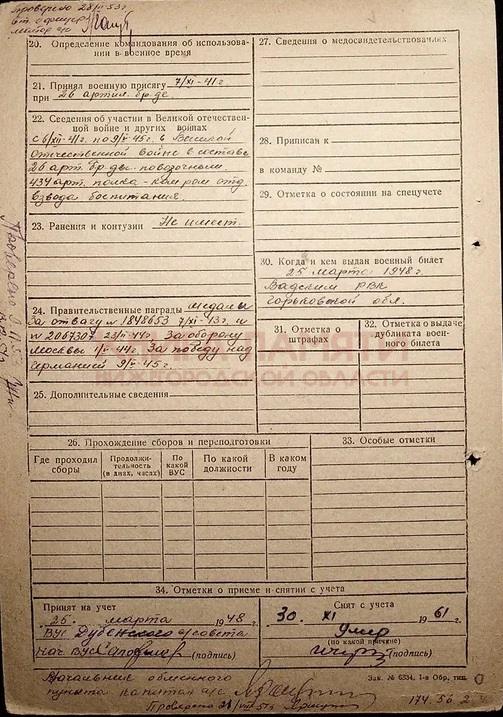 Проверено
20. Определение командования об использова-
нии в военное время
21. Принял военную присягу 7/XI-41г.
при 26 артил. бр-де.
22. Сведения об участии в Великой отечествен-
ной войне и других войнах
с 6/XII-41г. по 9/V-45г. в Великой
Отечественной войне в составе
26 арт. бр-ды
434 арт. полка отд.
взвода
23. Ранения и контузии Не имеет.
24. Правительственные награды медали
За отвагу № 1848653 7/XI-43г. и
№ 2067307 23/VII-44г. За оборону
Москвы 1/V-44г. За победу над
Германией 9/V-45г.
25. Дополнительные сведения
27. Сведения о медосвидетельствованиях
28. Приписан к
в команду №
29. Отметка о состоянии на спецучете
30. Когда и кем выдан военный билет
25 марта 1948 г.
Вадским РВК
Горьковской обл.
31. Отметка о
штрафах
32. Отметка о выдаче
дубликата военного
билета
ПАМЯТИ
НИЖЕГОРОДСКОЙ ОБЛАСТИ
26. Прохождение сборов и переподготовки
Где проходил
сборы
Продолжи-
тельность
(в днях, часах)
По
какой
ВУС
По какой
должности
В каком
году
33. Особые отметки
34. Отметки о приеме и снятии с учета
Принят на учет
25. марта 1948 г.
ВУС Дубенского с/совета
нач. ВУС (подпись)
Снят с учета
30. XI 1961 г.
Умер
(по какой причине)
(подпись)
Начальник обменного
пункта капитан а/с
Проверено
Зак. № 6334. 1-я Обр. тип.
174.56.2